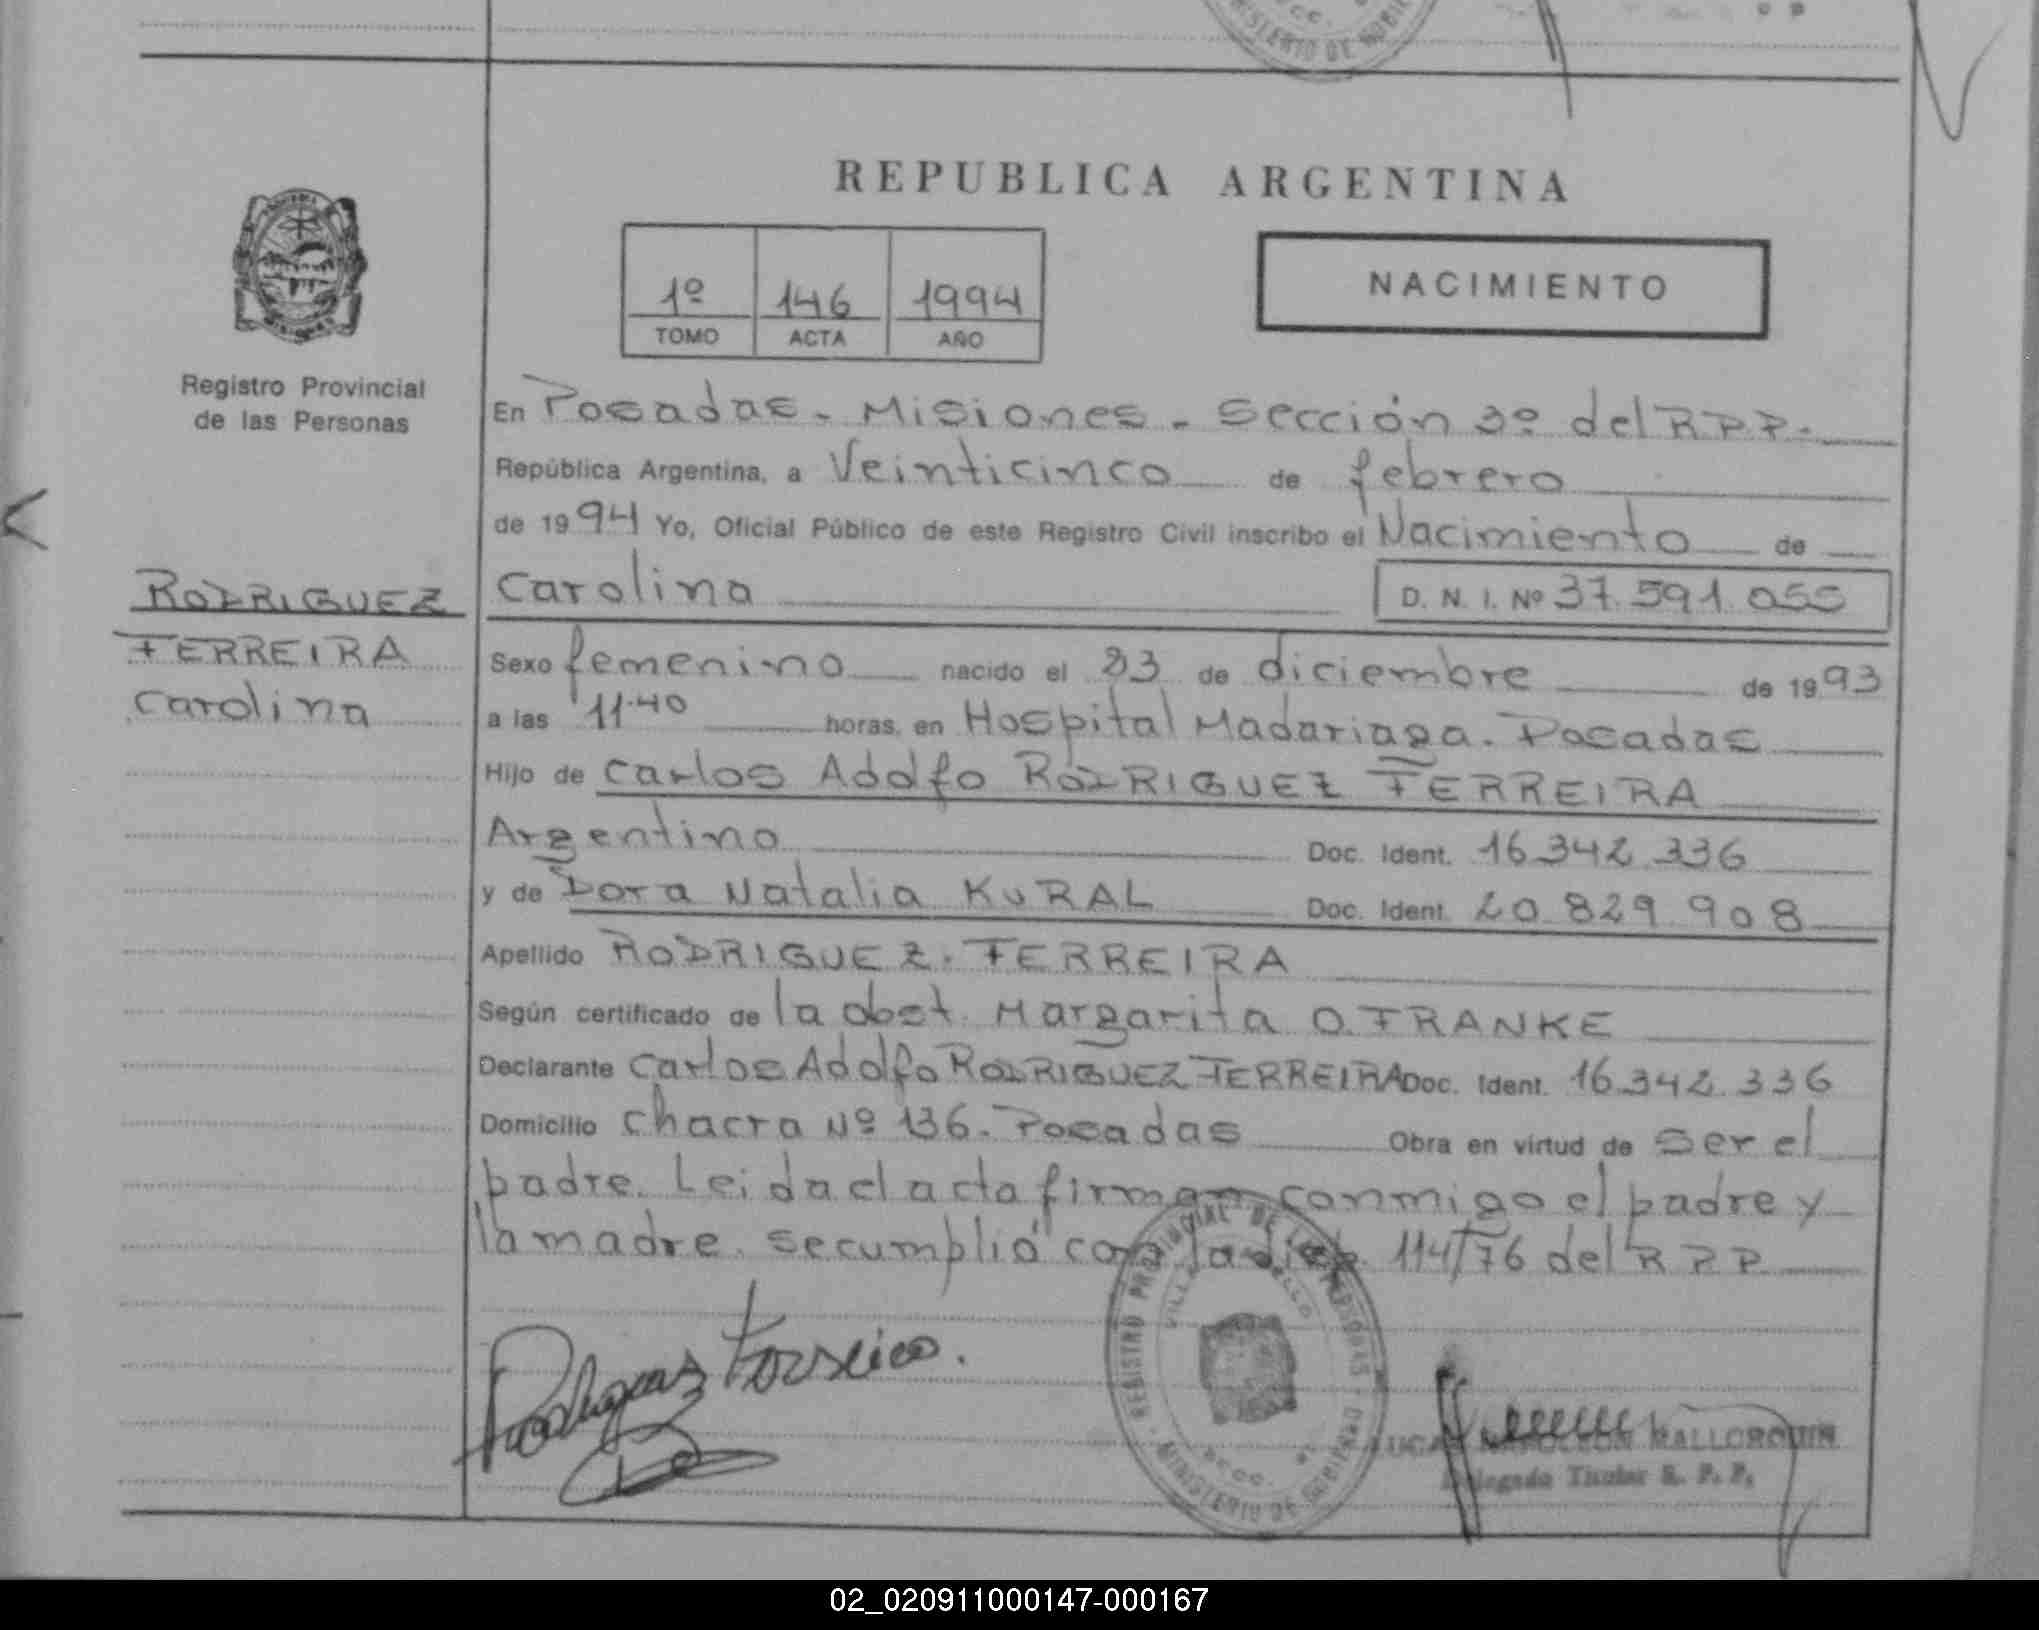 REPUBLICA ARGENTINA
1º 146 1994
TOMO ACTA AÑO
NACIMIENTO
Registro Provincial
de las Personas
RODRIGUEZ
FERREIRA
Carolina
En Posadas - Misiones - Sección 3º del R.P.P.
República Argentina, a Veinticinco de febrero
de 1994 Yo, Oficial Público de este Registro Civil inscribo el Nacimiento de
Carolina D. N. I. Nº 37.591.055
Sexo femenino nacido el 23 de diciembre de 1993
a las 11.40 horas, en Hospital Madariaga. Posadas
Hijo de Carlos Adolfo RODRIGUEZ FERREIRA
Argentino Doc. Ident. 16.342.336
y de Dora Natalia KURAL Doc. Ident. 20.829.908
Apellido RODRIGUEZ. FERREIRA
Según certificado de la obst. Margarita O. FRANKE
Declarante Carlos Adolfo RODRIGUEZ FERREIRA Doc. Ident. 16.342.336
Domicilio Chacra Nº 136. Posadas Obra en virtud de ser el
padre. Leida el acta firman conmigo el padre y
la madre. se cumplió con la disp. 114/76 del R.P.P.
Rodriguez Ferreira.
REGISTRO PROVINCIAL DE LAS PERSONAS
MINISTERIO DE GOBIERNO
LUCAS NAPOLEON MALLORQUIN
Delegado Titular R. P. P.
02_020911000147-000167